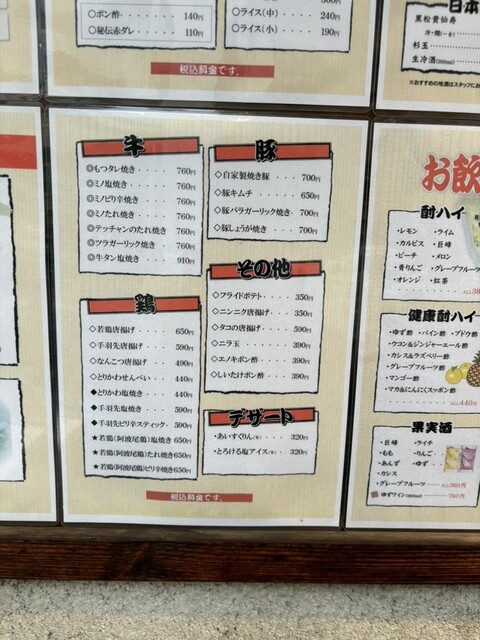 ○ポン酢 ・・・・・ 140円
○秘伝赤ダレ ・・・・ 110円
○ライス(中) ・・・ 240円
○ライス(小) ・・・ 190円
税込料金です。
日本
黒松貴仙寿
杉玉
生冷酒(300ml)
牛
◎もつタレ焼き ・・・・ 760円
◎ミノ塩焼き ・・・・・ 760円
◎ミノピリ辛焼き ・・・ 760円
◎ミノたれ焼き ・・・・ 760円
◎テッチャンのたれ焼き 760円
◎ツラガーリック焼き ・ 760円
◎牛タン塩焼き ・・・・ 910円
豚
◇自家製焼き豚 ・・・ 700円
◇豚キムチ ・・・・・ 650円
◇豚バラガーリック焼き・ 700円
◇豚しょうが焼き ・・・ 700円
その他
◇フライドポテト ・・・・ 350円
◇ニンニク唐揚げ ・・・ 350円
◇タコの唐揚げ ・・・・ 590円
◇ニラ玉 ・・・・・・ 390円
◇エノキポン酢 ・・・・ 390円
◇しいたけポン酢 ・・・ 390円
鶏
◇若鶏唐揚げ ・・・・・ 650円
◇手羽先唐揚げ ・・・・ 590円
◇なんこつ唐揚げ ・・・ 490円
◇とりかわせんべい ・・ 440円
◆とりかわ塩焼き ・・・ 440円
◆手羽先塩焼き ・・・・ 590円
◆手羽先ピリ辛スティック・ 590円
★若鶏(阿波尾鶏)塩焼き 650円
★若鶏(阿波尾鶏)たれ焼き650円
★若鶏(阿波尾鶏)ピリ辛焼き650円
デザート
・あいすくりん(W) ・・・・ 320円
・とろける塩アイス(W) ・・ 320円
税込料金です。
お飲
酎ハイ
・レモン ・ライム
・カルピス ・巨峰
・ピーチ ・メロン
・青りんご ・グレープフルーツ
・オレンジ ・紅茶
健康酎ハイ
・ゆず酢 ・パイン酢 ・ブドウ酢
・ウコン&ジンジャーエール酢
・カシス&ラズベリー酢
・グレープフルーツ酢
・マンゴー酢
・マカ&にんにくスッポン酢
ALL440円
果実酒
・巨峰 ・ライチ
・もも ・りんご
・あんず ・ゆず
・カシス
・グレープフルーツ ・・・・ ALL360円
ゆずワイン(300ml) ・・・・ 760円